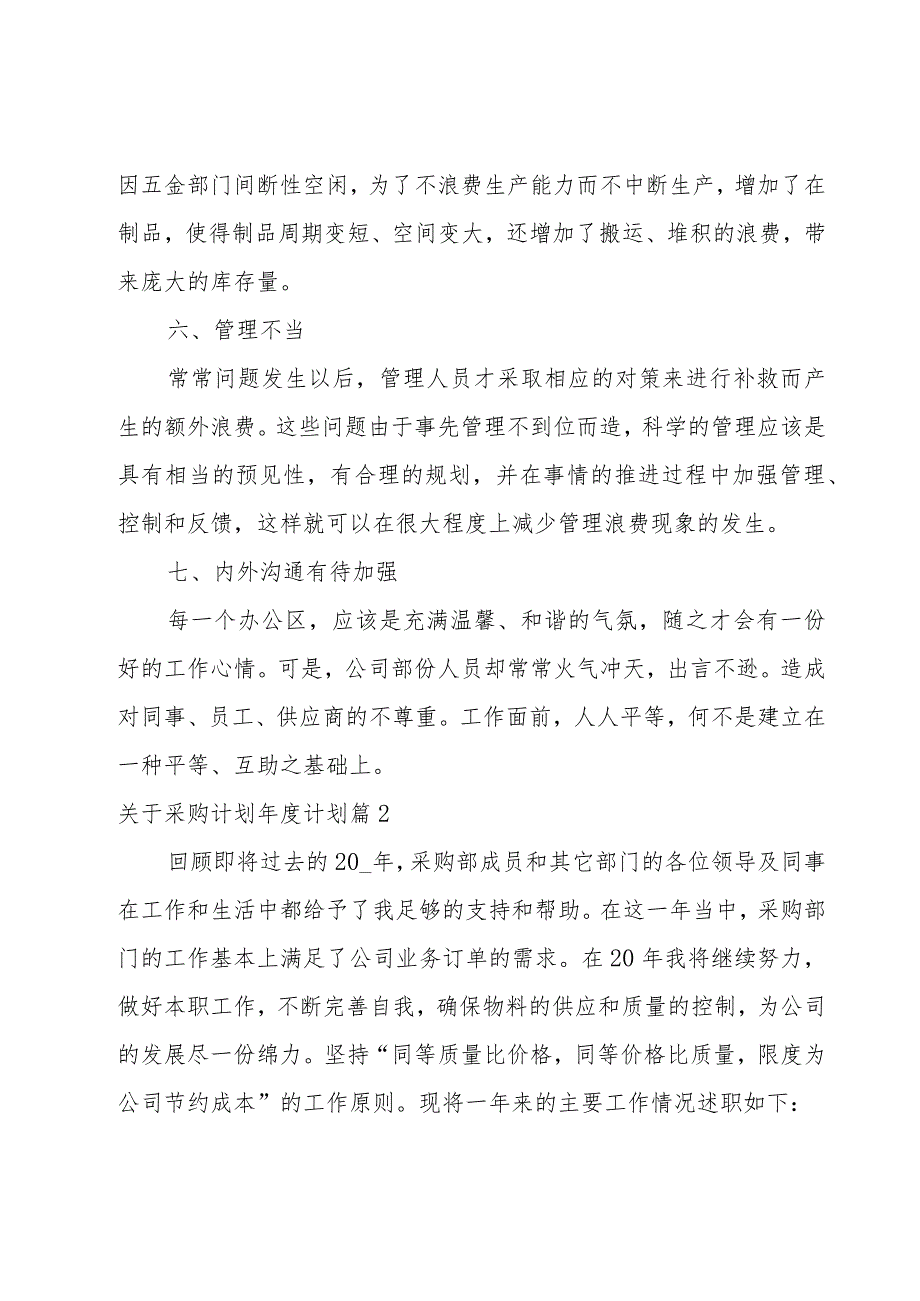 因五金部门间断性空闲，为了不浪费生产能力而不中断生产，增加了在
制品，使得制品周期变短、空间变大，还增加了搬运、堆积的浪费，带
来庞大的库存量。
六、管理不当
常常问题发生以后，管理人员才采取相应的对策来进行补救而产
生的额外浪费。这些问题由于事先管理不到位而造，科学的管理应该是
具有相当的预见性，有合理的规划，并在事情的推进过程中加强管理、
控制和反馈，这样就可以在很大程度上减少管理浪费现象的发生。
七、内外沟通有待加强
每一个办公区，应该是充满温馨、和谐的气氛，随之才会有一份
好的工作心情。可是，公司部份人员却常常火气冲天，出言不逊。造成
对同事、员工、供应商的不尊重。工作面前，人人平等，何不是建立在
一种平等、互助之基础上。
关于采购计划年度计划篇2
回顾即将过去的20_年，采购部成员和其它部门的各位领导及同事
在工作和生活中都给予了我足够的支持和帮助。在这一年当中，采购部
门的工作基本上满足了公司业务订单的需求。在20年我将继续努力，
做好本职工作，不断完善自我，确保物料的供应和质量的控制，为公司
的发展尽一份绵力。坚持“同等质量比价格，同等价格比质量，限度为
公司节约成本”的工作原则。现将一年来的主要工作情况述职如下：